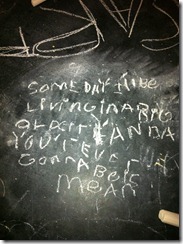 SOMEDAY I'll BE
LiViNG iN A BiG
OLD CiTY ANDA
YOU'R EVER
GONNA BEiS
MEAN